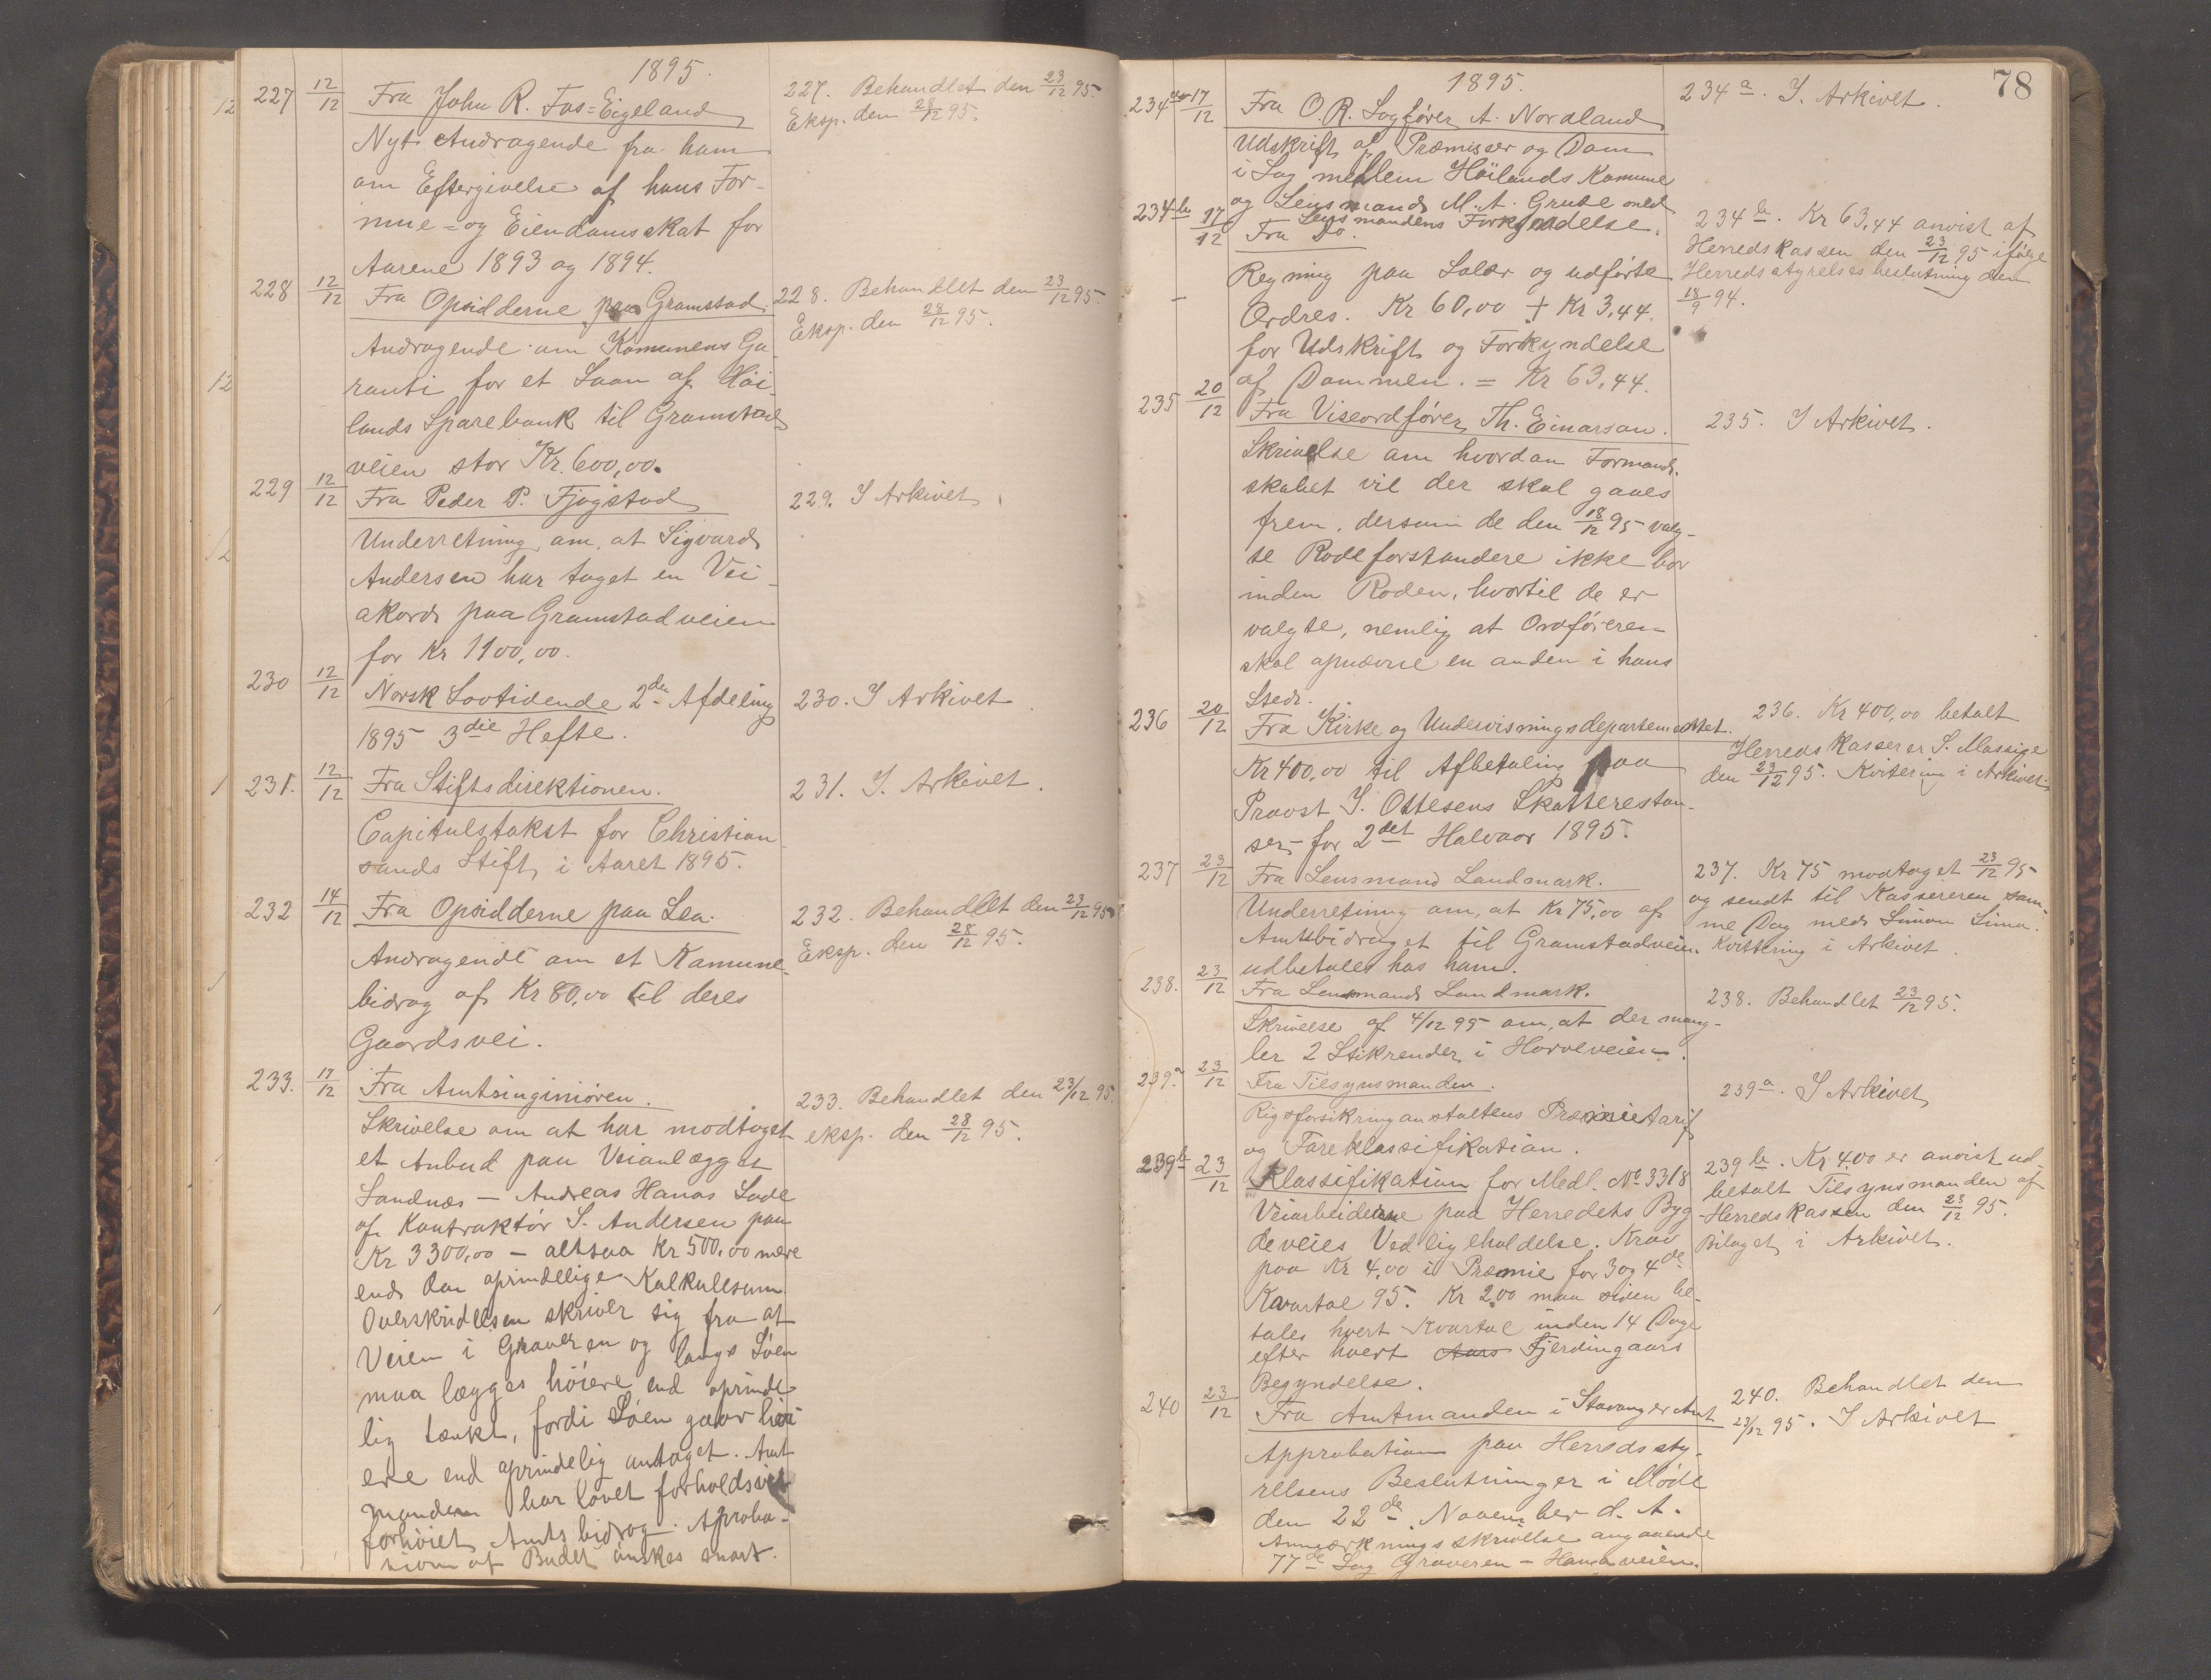 1895.
227 12/12 Fra John R. Fos=Eigeland
Nyt Andragende fra ham
om Eftergivelse af hans For-
mue=og Eiendomsskat for
Aarene 1893 og 1894.
227. Behandlet den 23/12 95.
Eksp. den 28/12 95.
228 12/12 Fra Opsidderne paa Gramstad.
Andragende om Komunens Ga-
ranti for et Laan af Høi-
lands Sparebank til Gramstad
veien stor Kr. 600,00.
228. Behandlet den 23/12 95.
Eksp. den 28/12 95.
229 12/12 Fra Peder P. Fjogstad
Underretning om, at Sigvard
Andersen har taget en Vei-
akord paa Gramstadveien
for Kr 1100,00.
229. I Arkivet
230 12/12 Norsk Lovtidende 2den Afdeling
1895 3die Hefte.
230. I Arkivet
231. 12/12 Fra Stiftsdirektionen.
Capitulstakst for Christian
sands Stift i Aaret 1895.
231. I. Arkivet.
232 14/12 Fra Opsidderne paa Lea.
Andragende om et Komune-
bidrag af Kr 80,00 til deres
Gaardsvei.
232. Behandlet den 23/12 95
Eksp. den 28/12 95.
233. 17/12 Fra Amtsinginiøren.
Skrivelse om at har modtaget
et Anbud paa Veianlægget
Sandnæs — Andreas Hanas Lade
af Kontraktør S. Andersen paa
Kr 3300,00 — altsaa Kr 500,00 mere
end den oprindelige Kalkulesum.
Overskridelsen skriver sig fra at
Veien i Graveren og langs Søen
maa lægges høiere end oprinde
lig tænkt, fordi Søen gaar høi-
ere end oprindelig antaget. Amt
manden har lovet forholdsvis
forhøiet Amtsbidrag. Aproba-
tion af Budet ønskes snart.
233. Behandlet den 23/12 95.
eksp. den 28/12 95.
78
1895.
234a 17/12 Fra O.R. Sagfører A. Nordland
Udskrift af Præmisser og Dom
i Sag mellem Høilands Komune
og Lensmand M. A. Grude med
Lensmandens Forkyndelse.
234a. I. Arkivet.
234b 17/12 Fra Do.
Regning paa Salær og udførte
Ordres. Kr 60,00 + Kr 3,44.
for Udskrift og Forkyndelse
af Dommen. = Kr 63,44.
234b. Kr 63,44 anvist af
Herredskassen den 23/12 95 ifølge
Herredsstyrelses beslutning den
18/9 94.
235 20/12 Fra Viseordfører Th. Einarson.
Skrivelse om hvordan Formand-
skabet vil der skal gaaes
frem, dersom de den 18/12 95 valg-
te Rodeforstandere ikke bor
inden Roden, hvortil de er
valgte, nemlig at Ordføreren
skal opnævne en anden i hans
Sted.
235. I Arkivet.
236 20/12 Fra Kirke og Undervisningsdepartementet.
Kr 400,00 til Afbetaling paa
Provst I. Ottesens Skatterestan-
ser for 2det Halvaar 1895.
236. Kr 400,00 betalt
Herredskasserer S.
den 23/12 95. Kvitering i Arkivet.
237 23/12 Fra Lensmand Landmark.
Underretning om, at Kr 75,00 af
Amtsbidraget til Gramstadveien
udbetales hos ham.
237. Kr 75 modtaget 23/12 95
og sendt til Kassereren sam-
me Dag med Simon Lima.
Kvittering i Arkivet.
238. 23/12 Fra Lensmand Landmark.
Skrivelse af 4/12 95 om, at der mang-
ler 2 Stikrender i Hoveveien.
238. Behandlet 23/12 95.
239a 23/12 Fra Tilsynsmanden.
Rigsforsikringanstaltens Præmietarif
og Fareklassifikation.
239a. I Arkivet
239b 23/12 Klassifikation for Medl. No 3318
Veiarbeiderne paa Herredets Byg
deveies Vedligeholdelse. Krav
paa Kr 4,00 i Præmie for 3 og 4de
Kvartal 95. Kr 2,00 maa siden be-
tales hvert Kvartal inden 14 Dage
efter hvert Aars Fjerdingaars
Begyndelse.
239b. Kr 4,00 er anvist ud-
betalt Tilsynsmanden af
Herredskassen den 23/12 95.
Bilaget i Arkivet.
240 23/12 Fra Amtmanden i Stavanger Amt
Approbation paa Herredssty-
relsens Beslutninger i Møde
den 22de November d. A.
Anmærkningsskrivelse angaaende
77de Sag Graveren — Hanaveien.
240. Behandlet den
23/12 95. I Arkivet